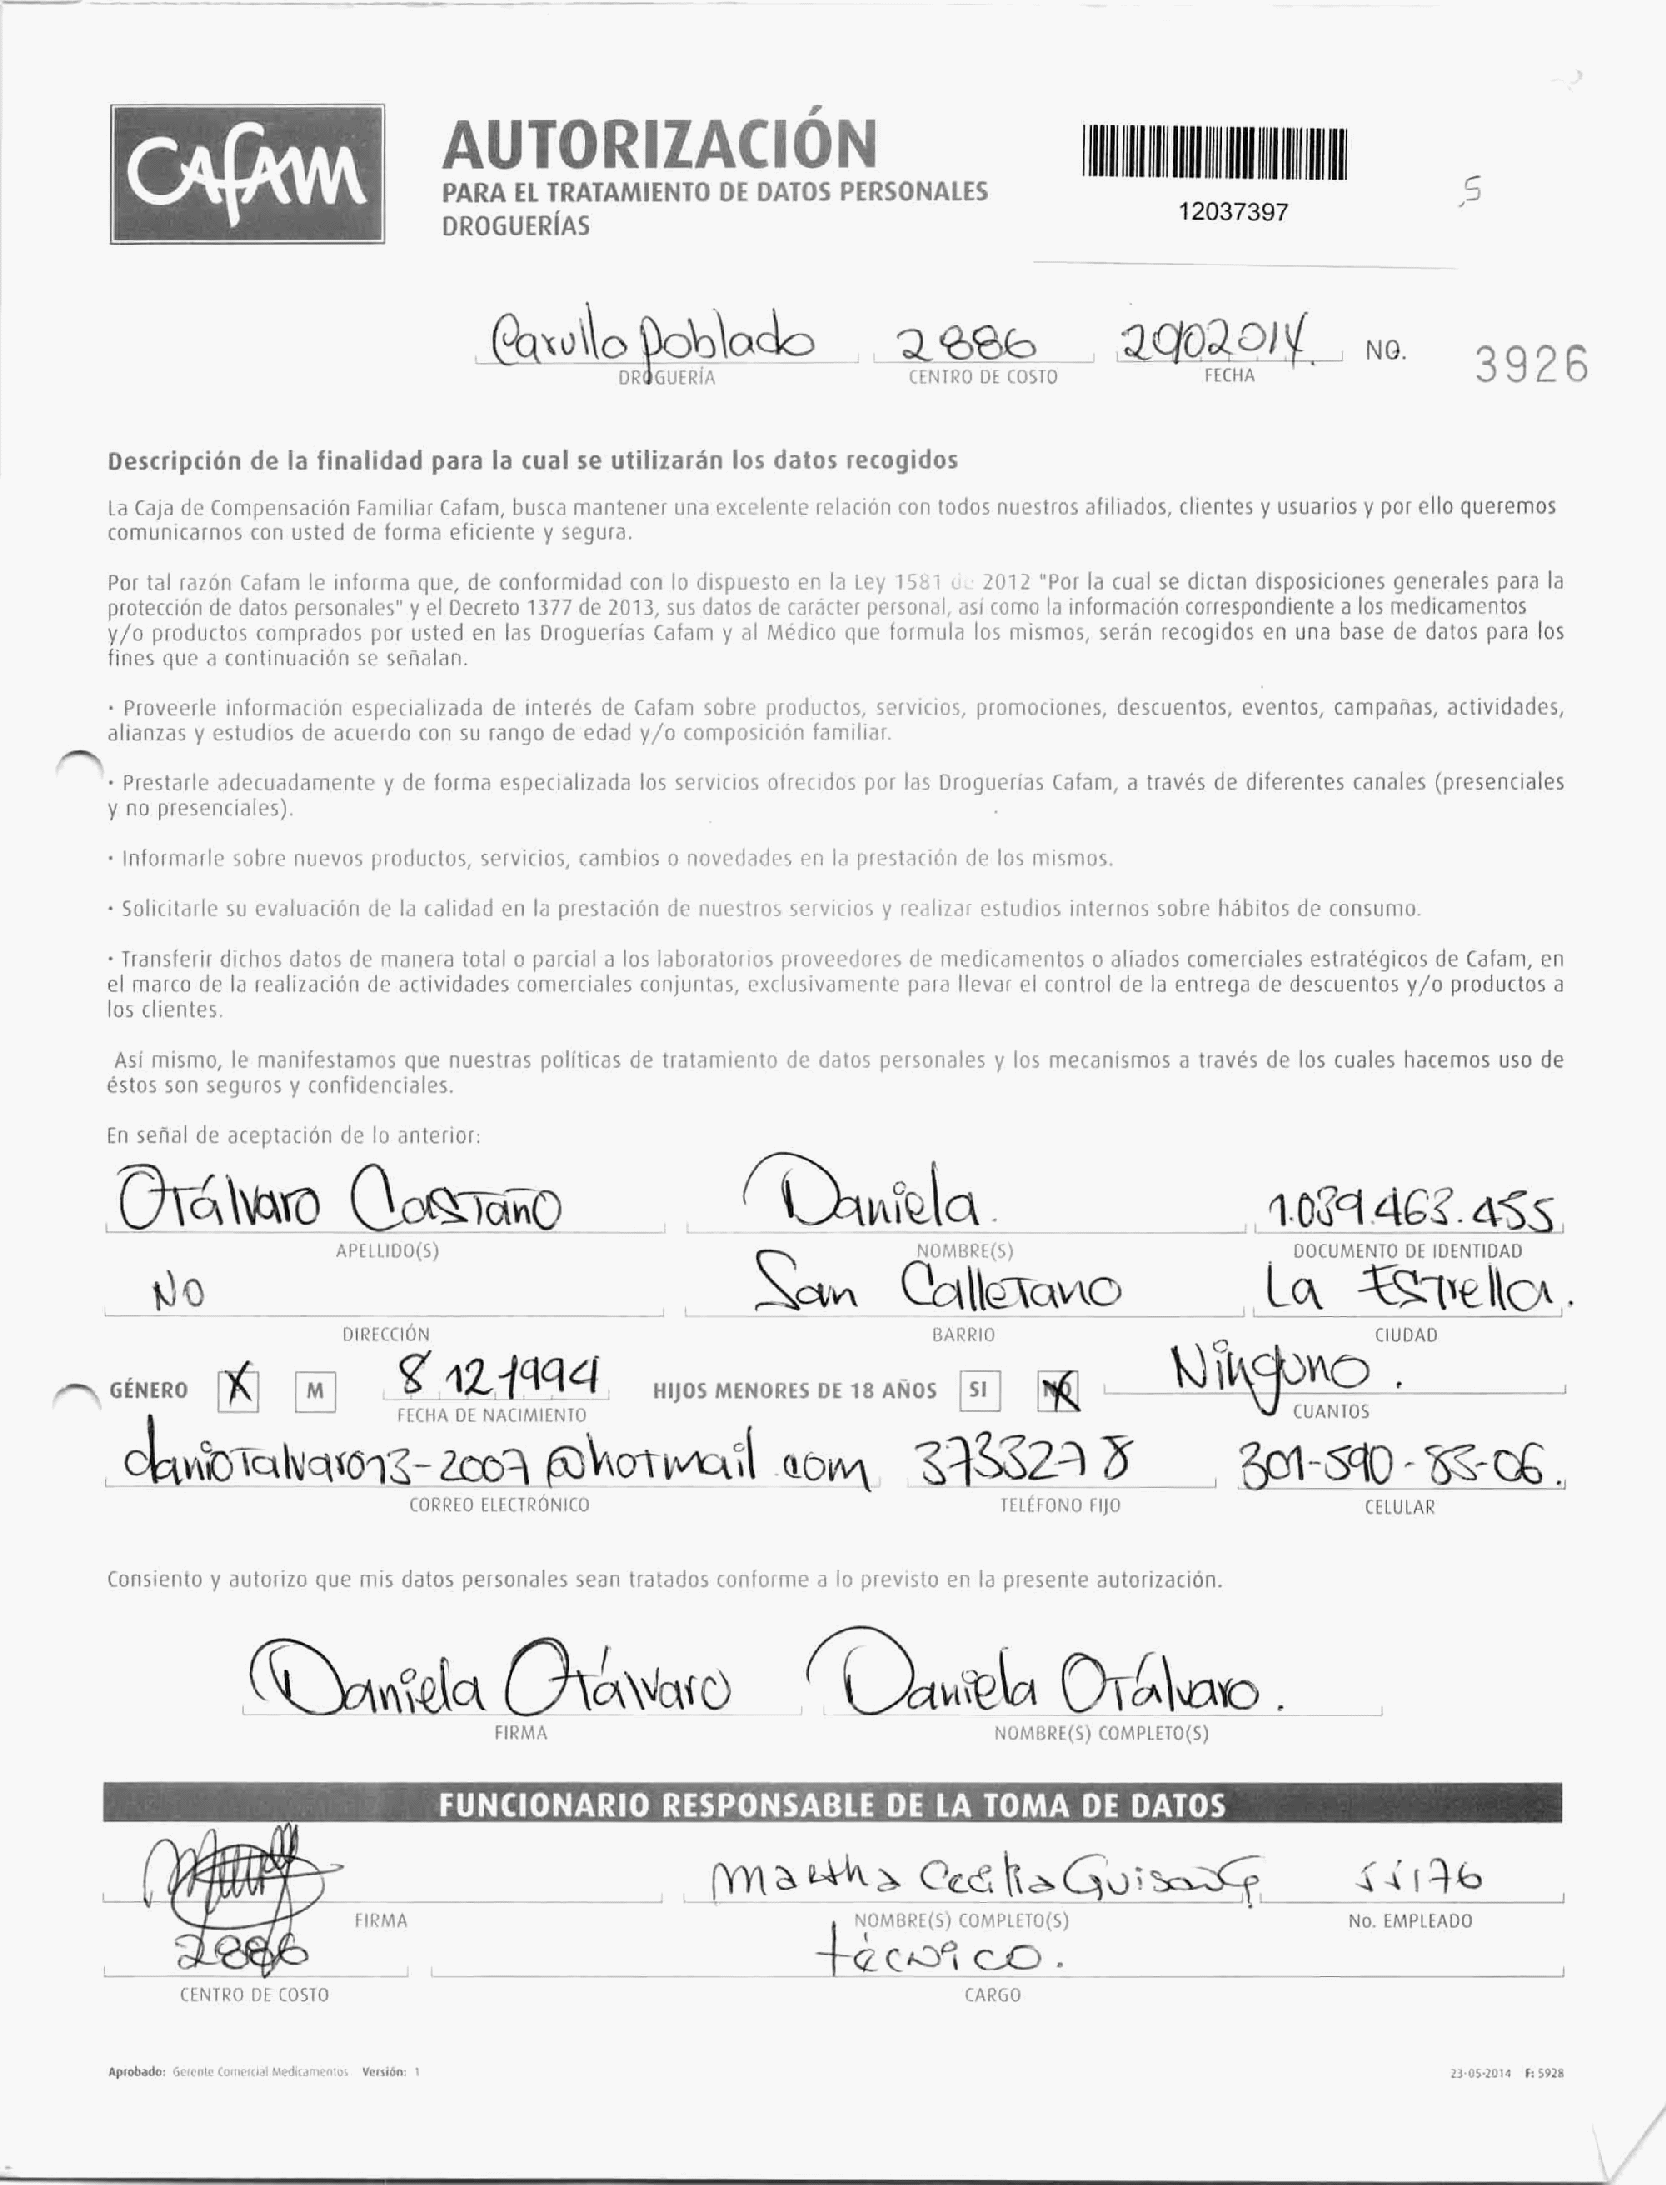 CAFAM
AUTORIZACIÓN
PARA EL TRATAMIENTO DE DATOS PERSONALES
DROGUERÍAS
12037397
5
Carulla Poblado 2886 29/02014. NO. 3926
DROGUERÍA CENTRO DE COSTO FECHA
Descripción de la finalidad para la cual se utilizarán los datos recogidos
La Caja de Compensación Familiar Cafam, busca mantener una excelente relación con todos nuestros afiliados, clientes y usuarios y por ello queremos
comunicarnos con usted de forma eficiente y segura.
Por tal razón Cafam le informa que, de conformidad con lo dispuesto en la Ley 1581 de 2012 "Por la cual se dictan disposiciones generales para la
protección de datos personales" y el Decreto 1377 de 2013, sus datos de carácter personal, así como la información correspondiente a los medicamentos
y/o productos comprados por usted en las Droguerías Cafam y al Médico que formula los mismos, serán recogidos en una base de datos para los
fines que a continuación se señalan.
· Proveerle información especializada de interés de Cafam sobre productos, servicios, promociones, descuentos, eventos, campañas, actividades,
alianzas y estudios de acuerdo con su rango de edad y/o composición familiar.
· Prestarle adecuadamente y de forma especializada los servicios ofrecidos por las Droguerías Cafam, a través de diferentes canales (presenciales
y no presenciales).
· Informarle sobre nuevos productos, servicios, cambios o novedades en la prestación de los mismos.
· Solicitarle su evaluación de la calidad en la prestación de nuestros servicios y realizar estudios internos sobre hábitos de consumo.
· Transferir dichos datos de manera total o parcial a los laboratorios proveedores de medicamentos o aliados comerciales estratégicos de Cafam, en
el marco de la realización de actividades comerciales conjuntas, exclusivamente para llevar el control de la entrega de descuentos y/o productos a
los clientes.
Así mismo, le manifestamos que nuestras políticas de tratamiento de datos personales y los mecanismos a través de los cuales hacemos uso de
éstos son seguros y confidenciales.
En señal de aceptación de lo anterior:
Otálvaro Castaño Daniela. 1.039.463.455
APELLIDO(S) NOMBRE(S) DOCUMENTO DE IDENTIDAD
NO San Calletano La Estrella.
DIRECCIÓN BARRIO CIUDAD
GÉNERO X M 8 12 1994 HIJOS MENORES DE 18 AÑOS SI NO Ninguno.
FECHA DE NACIMIENTO CUANTOS
daniotalvaro13-2007@hotmail.com 3733278 301-590-83-06.
CORREO ELECTRÓNICO TELÉFONO FIJO CELULAR
Consiento y autorizo que mis datos personales sean tratados conforme a lo previsto en la presente autorización.
Daniela Otálvaro Daniela Otálvaro.
FIRMA NOMBRE(S) COMPLETO(S)
FUNCIONARIO RESPONSABLE DE LA TOMA DE DATOS
Martha Cecilia 55176
FIRMA NOMBRE(S) COMPLETO(S) No. EMPLEADO
2886 técnico.
CENTRO DE COSTO CARGO
Aprobado: Gerente Comercial Medicamentos Versión: 1 23-05-2014 F: 5928